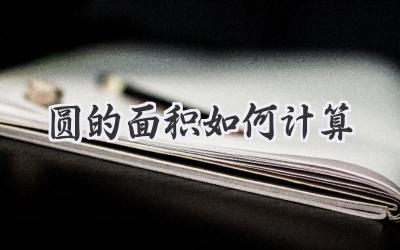 圆的面积如何计算